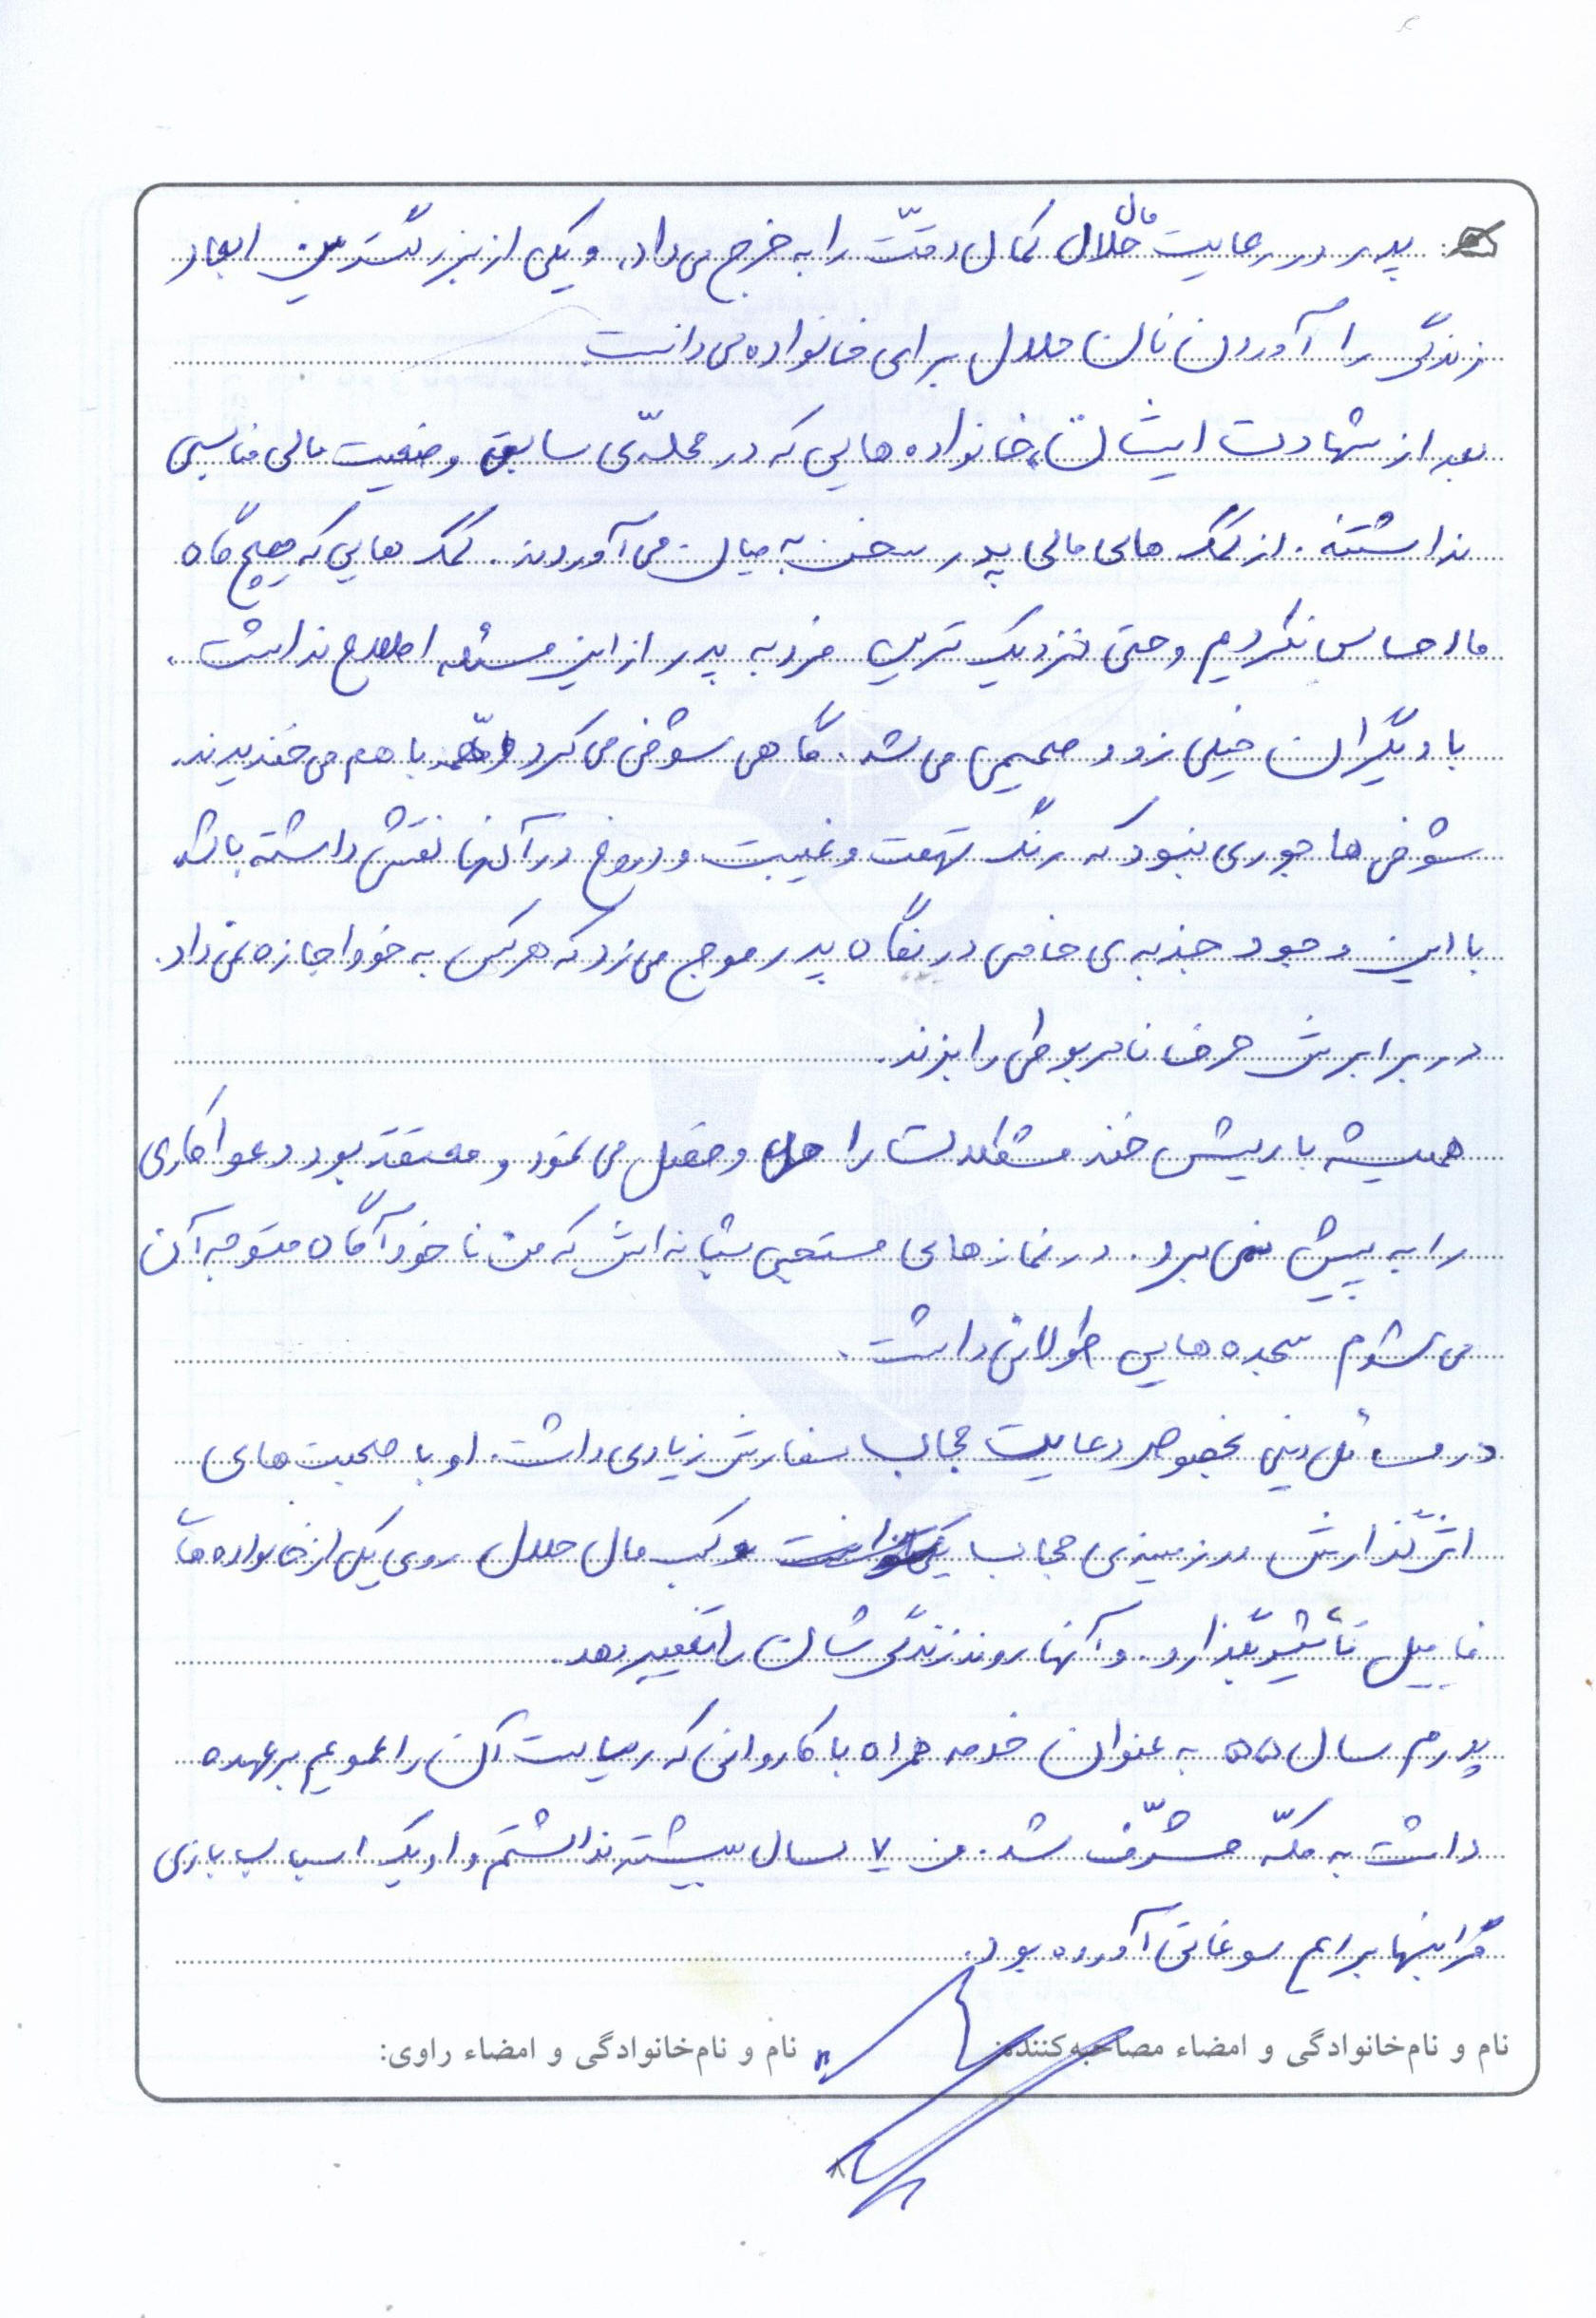 پدر در رعایت مال حلال کمال دقتّ را به خرج می‌داد، و یکی از بزرگترین ابعاد
زندگی را آوردن نان حلال برای خانواده می‌دانست
بعد از شهادت ایشان، خانواده هایی که در محلّه‌ی سابق وضعیت مالی مناسبی
نداشتند. از کمک های مالی پدر سخن به میان می‌آوردند. کمک هایی که هیچ گاه
ما احساس نکردیم و حتی نزدیک ترین فرد به پدر از این مسئله اطلاع نداشت.
با دیگران خیلی زود صمیمی می‌شد. گاهی شوخی می‌کرد و همه با هم می‌خندیدند.
شوخی ها جوری نبود که رنگ تهمت و غیبت و دروغ در آنها نقش داشته باشد
با این وجود جذبه‌ی خاصی در نگاه پدر موج می‌زد که هرکس به خود اجازه نمی‌داد.
در برابرش حرف نامربوطی را بزند.
همیشه با ریش خند مشکلات را حل و فصل می‌نمود و معتقد بود دعوا کاری
را به پیش نمی‌برد. در نماز های مستحبی شبانه اش که من ناخودآگاه متوجه آن
می‌شوم سجده هایی طولانی داشت.
در مسائل دینی بخصوص رعایت حجاب سفارش زیادی داشت. او با صحبت های
اثر گذارش در زمینه‌ی حجاب و کسب مال حلال روی یکی از خانواده های
فامیل تأثیر بگذارد. و آنها روند زندگی شان را تغییر دهد.
پدرم سال ۵۵ به عنوان خدمه همراه با کاروانی که ریاست آن را عمویم بر عهده
داشت به مکّه مشرّف شد. من ۷ سال بیشتر نداشتم و او یک اسباب بازی
گرانبها برایم سوغاتی آورده بود.
نام و نام‌خانوادگی و امضاء مصاحبه‌کننده: نام و نام‌خانوادگی و امضاء راوی:
۸